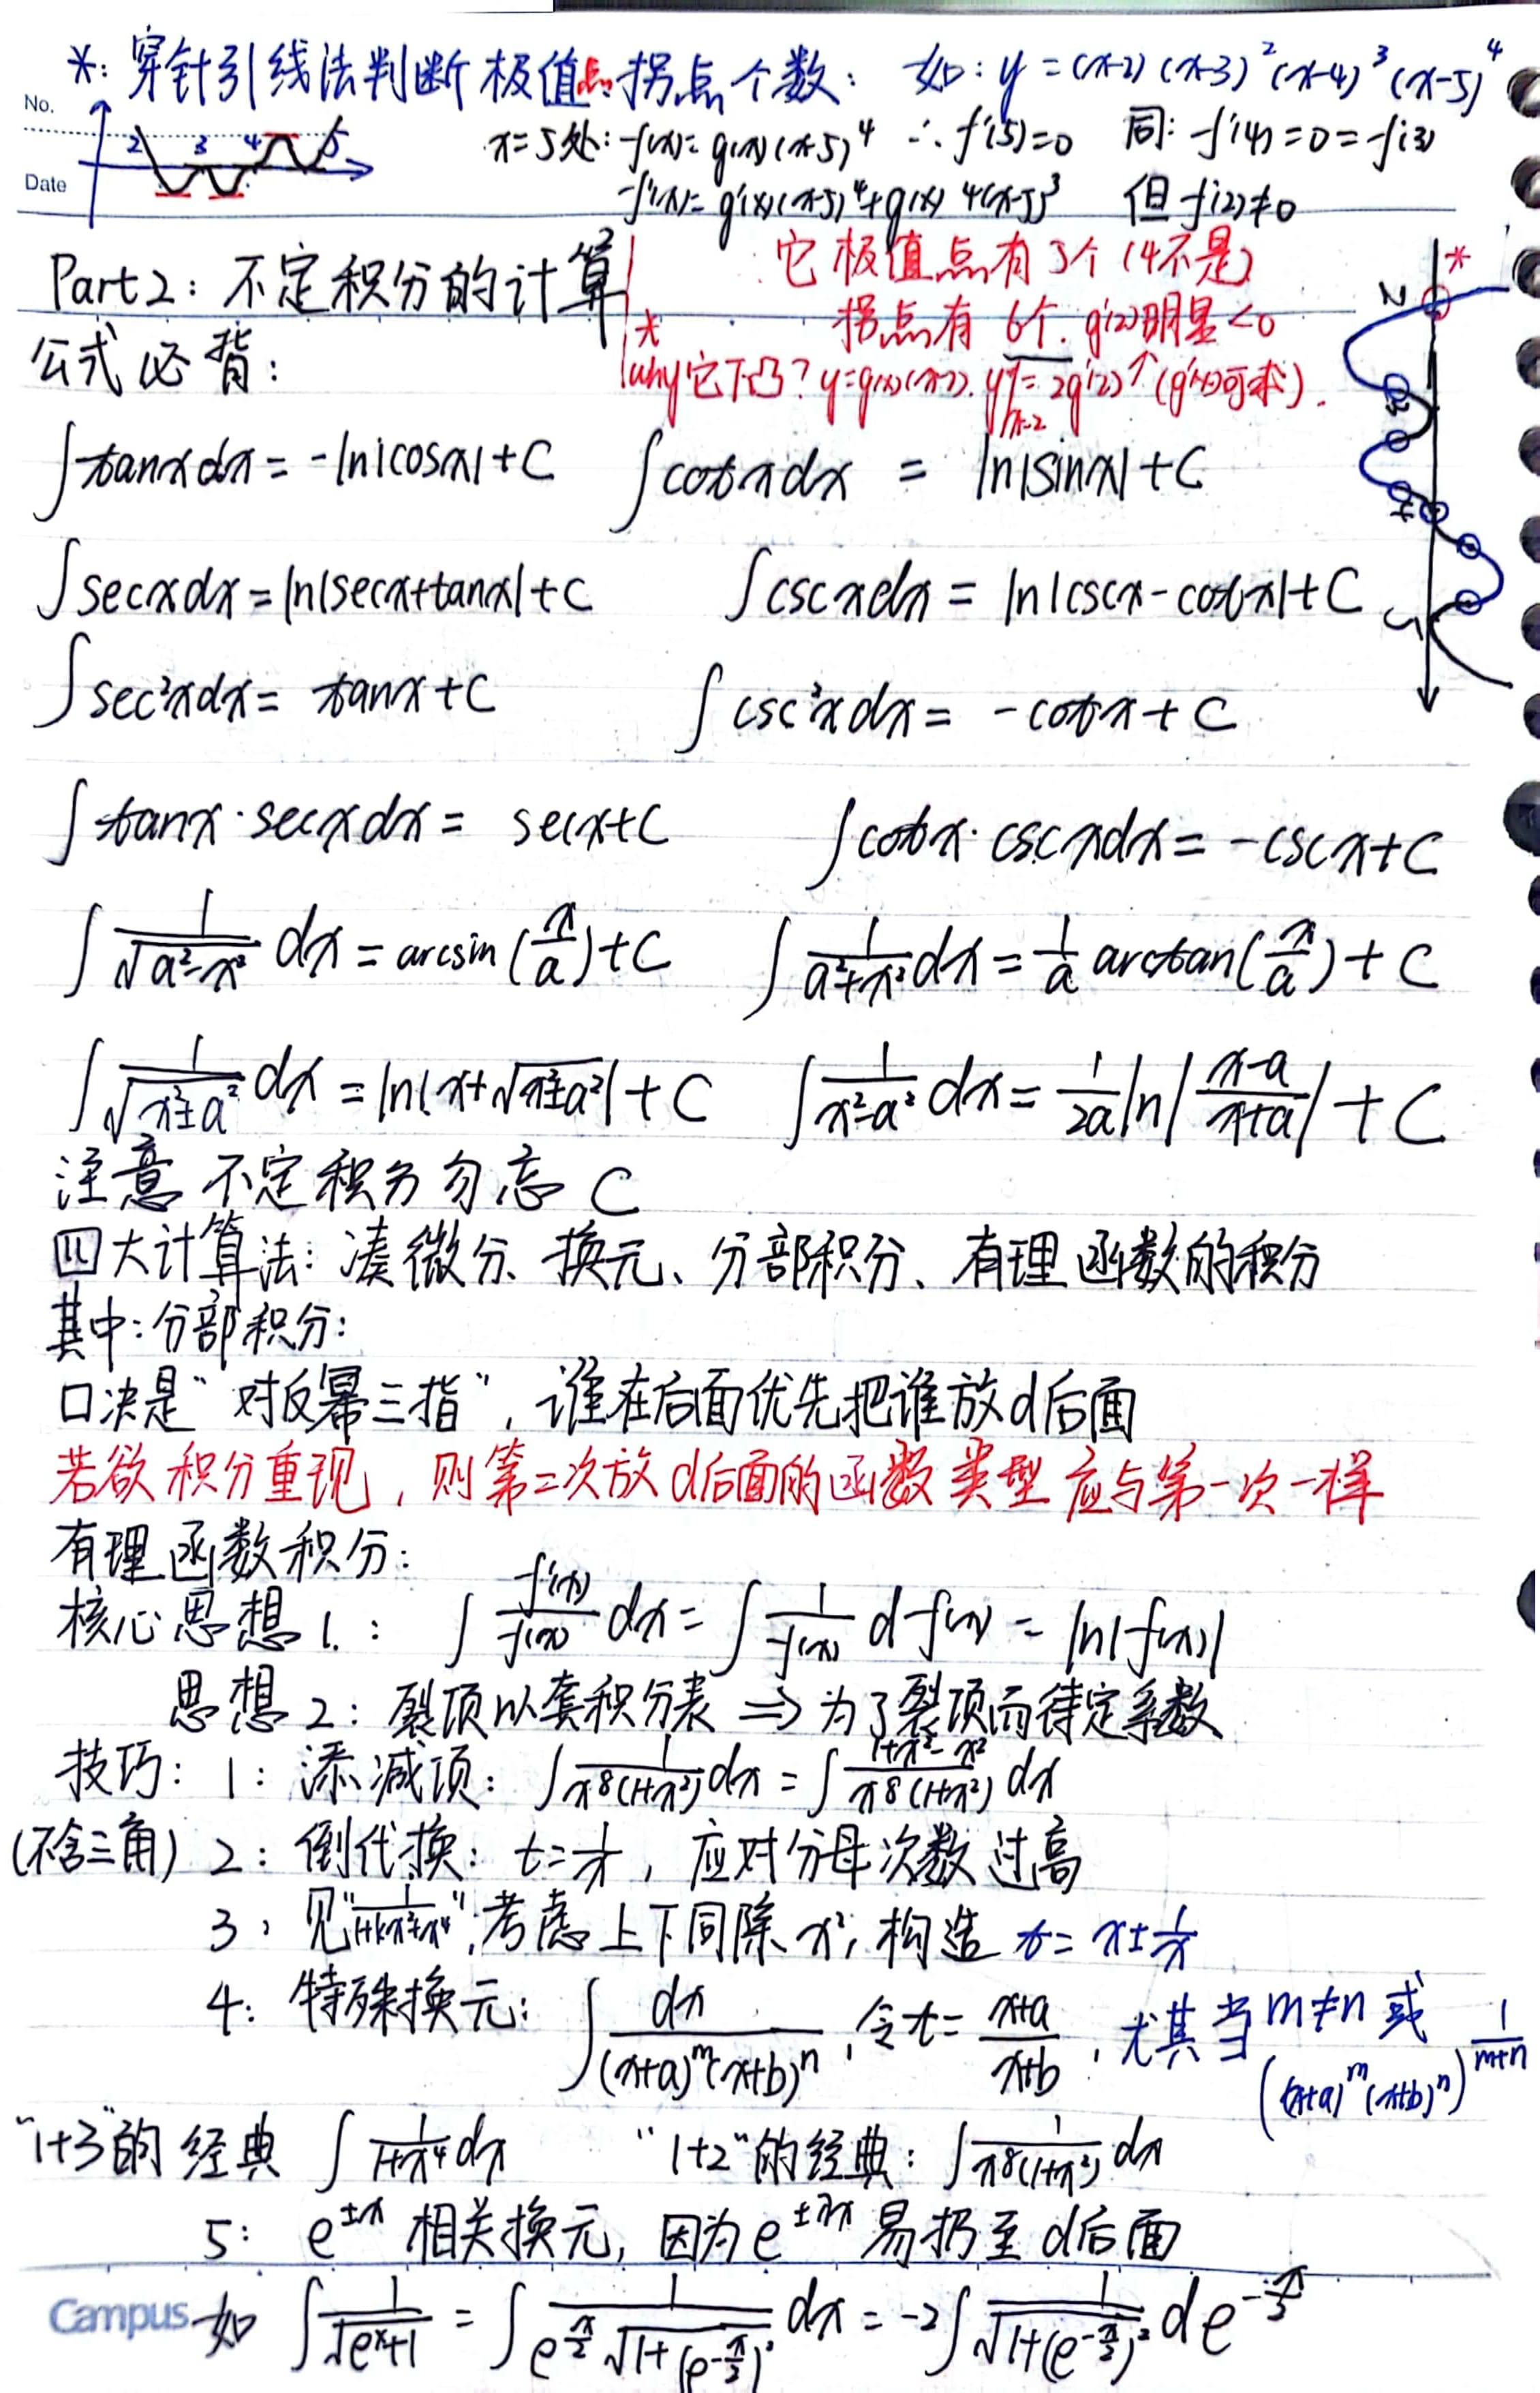 *: 穿针引线法判断极值点、拐点个数: 如: y = (x-2)(x-3)²(x-4)³(x-5)⁴
No.
Date
2 3 4 5
x=5处: f(x)=g(x)(x-5)⁴ ∴ f'(5)=0 同: f'(4)=0=f'(3)
f'(x)=g'(x)(x-5)⁴+g(x) 4(x-5)³ 但 f'(2)≠0
它极值点有5个 (4不是)
Part2: 不定积分的计算
拐点有 6个. g'(2)明显<0
公式必背:
* why它下凸? y=g(x)(x-2). y''|x=2 = 2g'(2)↑ (g'(x)可求).
*
2 3 4 5
∫tanxdx = -ln|cosx|+C ∫cotxdx = ln|sinx|+C
∫secxdx = ln|secx+tanx|+C ∫cscxdx = ln|cscx-cotx|+C
∫sec²xdx = tanx+C ∫csc²xdx = -cotx+C
∫tanx·secxdx = secx+C ∫cotx·cscxdx = -cscx+C
∫1/√(a²-x²) dx = arcsin(x/a)+C ∫1/(a²+x²) dx = 1/a arctan(x/a)+C
∫1/√(x²±a²) dx = ln|x+√(x²±a²)|+C ∫1/(x²-a²) dx = 1/2a ln|(x-a)/(x+a)|+C
注意 不定积分勿忘 C
四大计算法: 凑微分、换元、分部积分、有理函数的积分
其中: 分部积分:
口决是"对反幂三指", 谁在后面优先把谁放d后面
若欲积分重现, 则第二次放d后面的函数类型应与第一次一样
有理函数积分:
核心思想1.: ∫f'(x)/f(x) dx = ∫1/f(x) d f(x) = ln|f(x)|
思想2: 裂项以套积分表 ⇒ 为了裂项而待定系数
技巧: 1: 添减项: ∫1/(x⁸(1+x²)) dx = ∫(1+x²-x²)/(x⁸(1+x²)) dx
(不含三角) 2: 倒代换: t=1/x, 应对分母次数过高
3: 见"1/(1+kx²+x⁴)", 考虑上下同除x², 构造 t=x±1/x
4: 特殊换元: ∫dx/((x+a)^m(x+b)^n), 令t=(x+a)/(x+b), 尤其当m≠n 或 ((x+a)^m(x+b)^n)^(1/(m+n))
"1+3"的经典 ∫1/(1+x⁴) dx "1+2"的经典: ∫1/(x⁸(1+x²)) dx
5: e^(±x) 相关换元, 因为e^(±λx) 易扔至d后面
Campus 如 ∫1/√(e^x+1) = ∫1/(e^(x/2)√(1+(e^(-x/2))²)) dx = -2∫1/√(1+(e^(-x/2))²) d e^(-x/2)